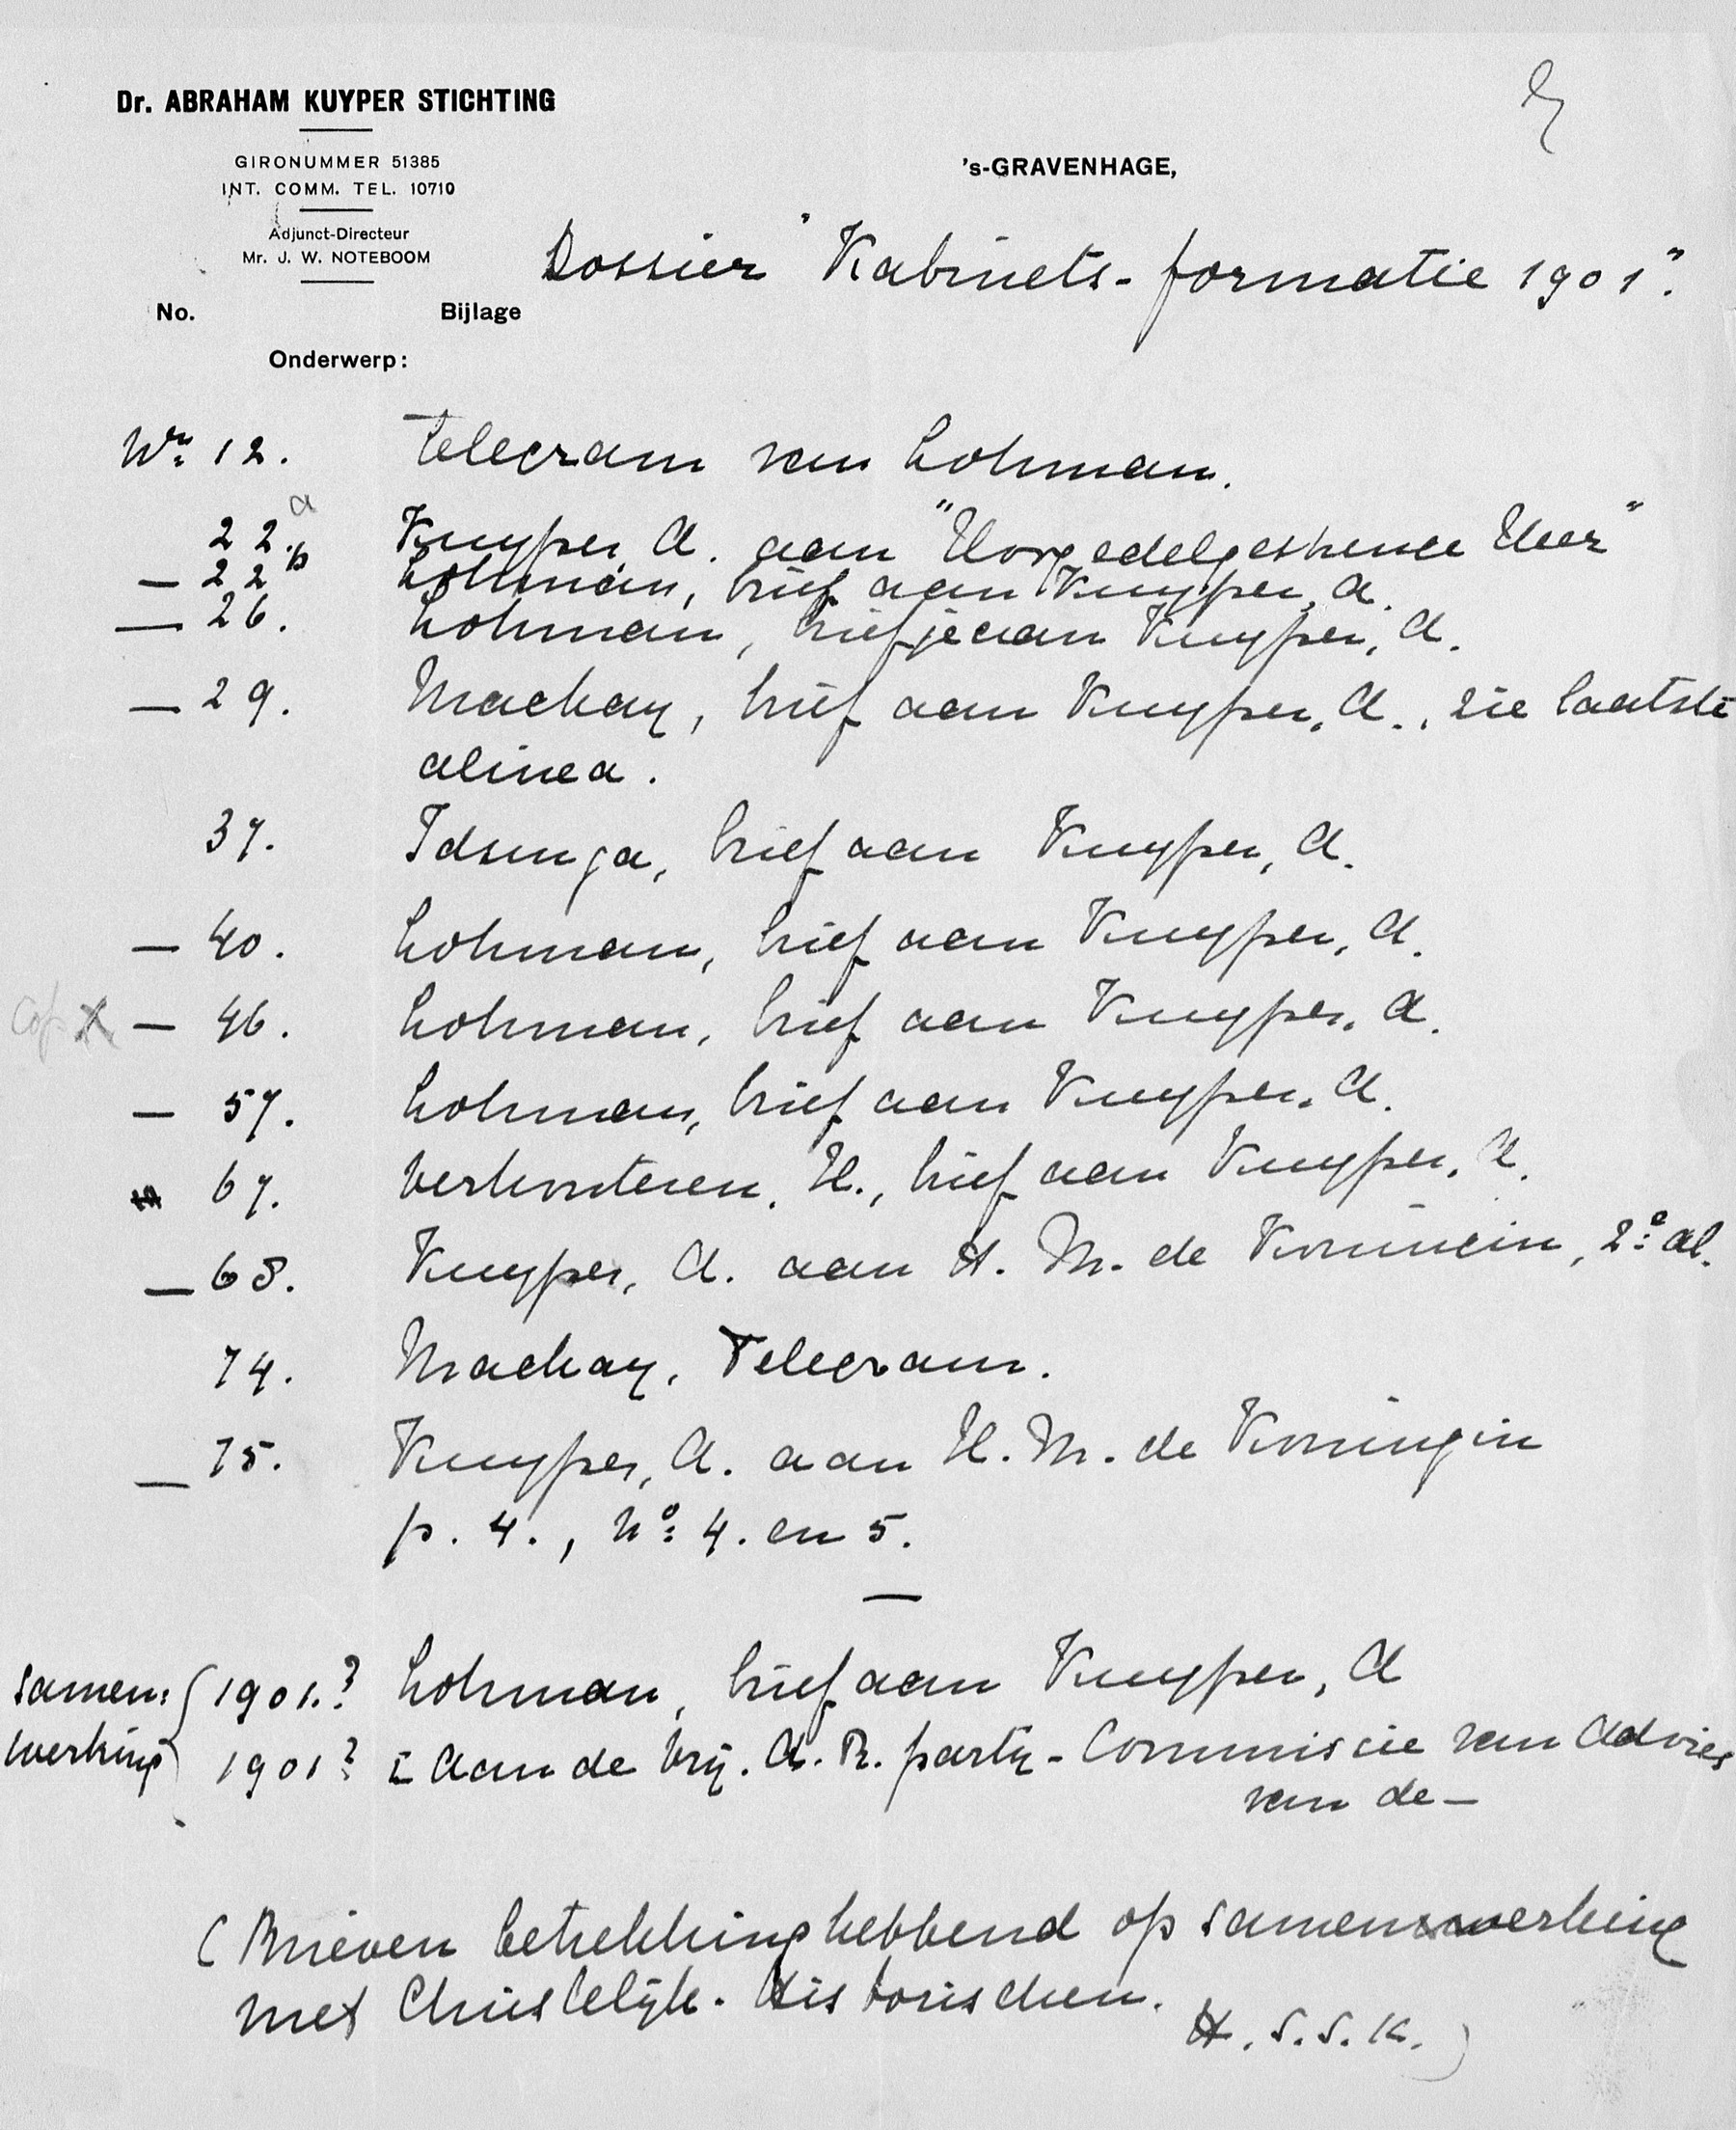 Dr. ABRAHAM KUYPER STICHTING
GIRONUMMER 51385
INT. COMM. TEL. 10710
Adjunct-Directeur
Mr. J. W. NOTEBOOM
's-GRAVENHAGE,
Dossier "Kabinets-formatie 1901".
No. Bijlage
Onderwerp:
Nr. 12. Telegram van Lohman.
22.a Kuyper, A. aan "Hoogedelgestrenge Heer"
— 22 b Lohman, brief aan Kuyper, A.
— 26. Lohman, briefje aan Kuyper, A.
— 29. Mackay, brief aan Kuyper, A., zie laatste
alinea.
37. Idsinga, brief aan Kuyper, A.
— 40. Lohman, brief aan Kuyper, A.
cop X — 46. Lohman, brief aan Kuyper, A.
— 57. Lohman, brief aan Kuyper, A.
67. Verkouteren, H., brief aan Kuyper, A.
— 68. Kuyper, A. aan H. M. de Koningin, 2e al.
74. Mackay, Telegram.
— 75. Kuyper, A. aan H. M. de Koningin
p. 4., No. 4. en 5.
—
samen: { 1901.? Lohman, brief aan Kuyper, A
werking 1901? Aan de Vrij. A. R. party - Commissie van Advies
van de —
(Brieven betrekking hebbend op samenwerking
met Christelijk-Historischen.
H. S. S. K.)